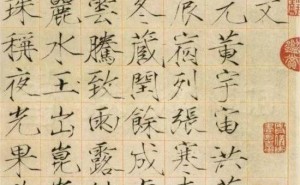 文
元黃宇宙洪
辰宿列張寒來
冬藏閏餘成
雲騰致雨露
麗水玉出崑
珠稱夜光果